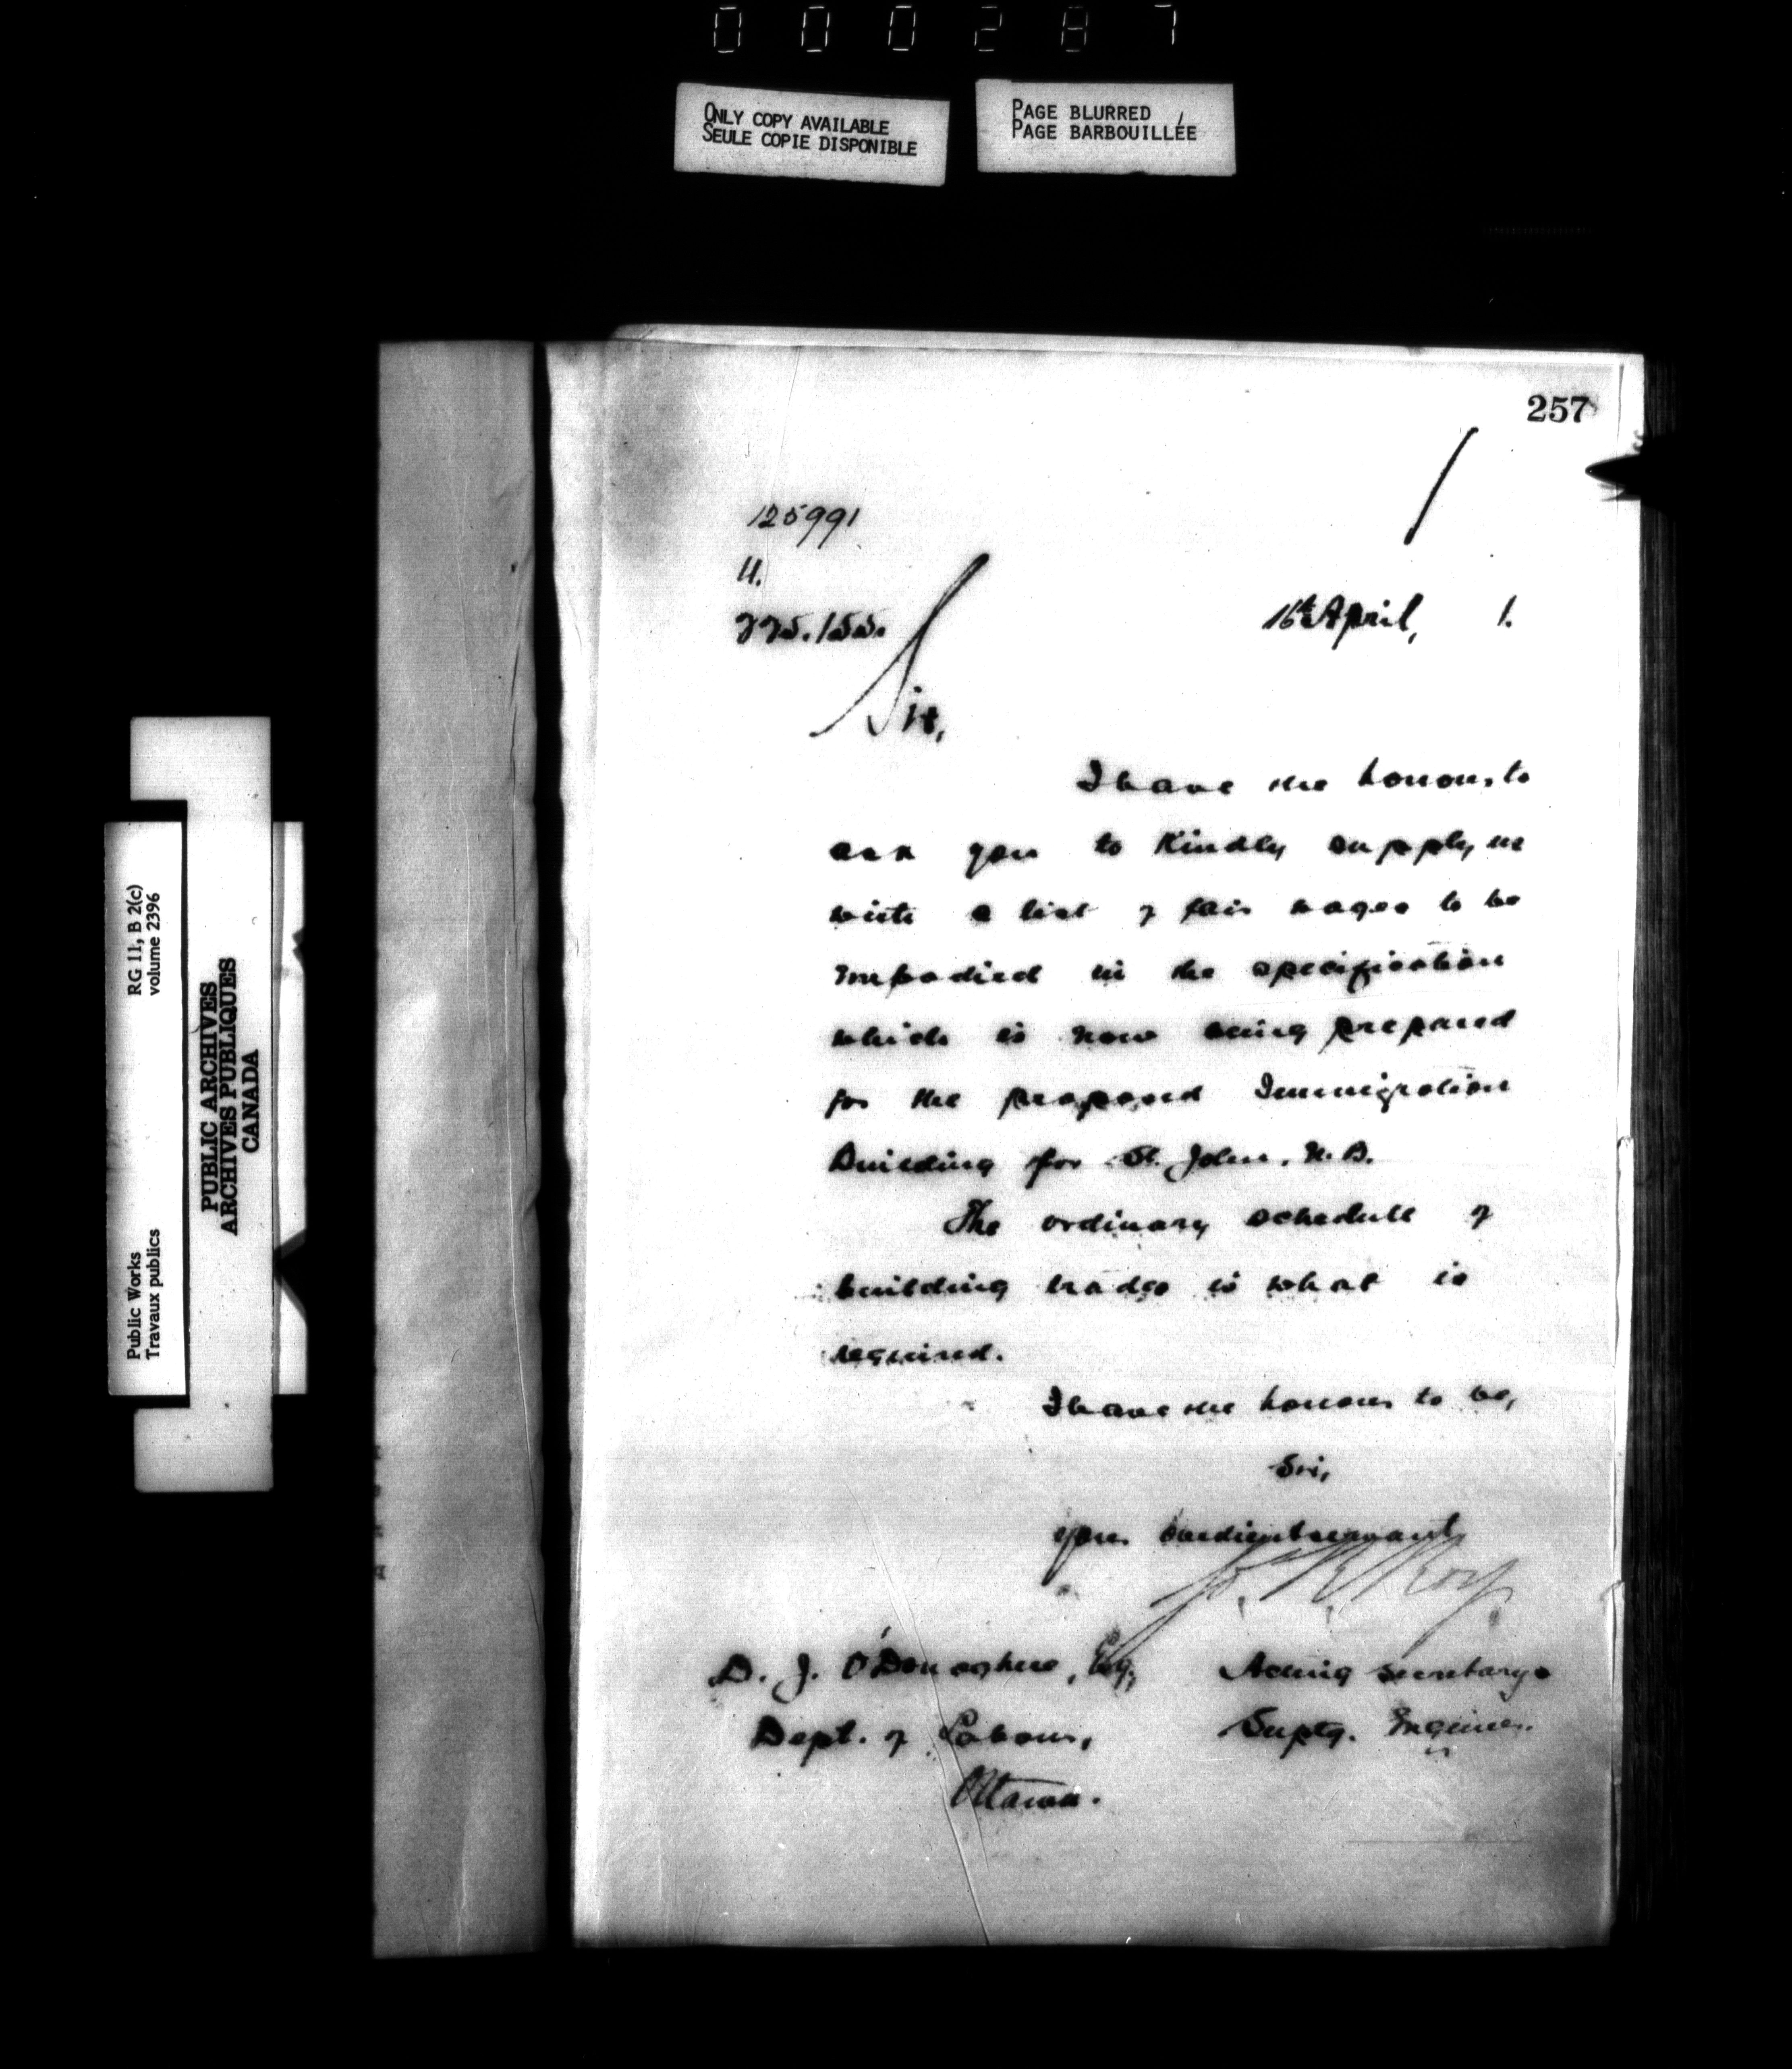 000287
ONLY COPY AVAILABLE
SEULE COPIE DISPONIBLE
PAGE BLURRED
PAGE BARBOUILLÉE
257
125991
16th April, 1.
Sir,
I have the honour to
ask you to kindly supply me
with a list of fair wages to be
imbodied in the specification
which is now being prepared
for the proposed Immigration
Building for St. John, N.B.
The ordinary schedule of
building trades is what is
required.
I have the honour to be,
Sir,
your obedient servant
Roy
D. J. O'Donoghue, Esq.,
Acting Secretary &
Dept. of Labour,
Suptg. Engineer.
Ottawa.
RG 11, B 2(c)
volume 2396
PUBLIC ARCHIVES
ARCHIVES PUBLIQUES
CANADA
Public Works
Travaux publics